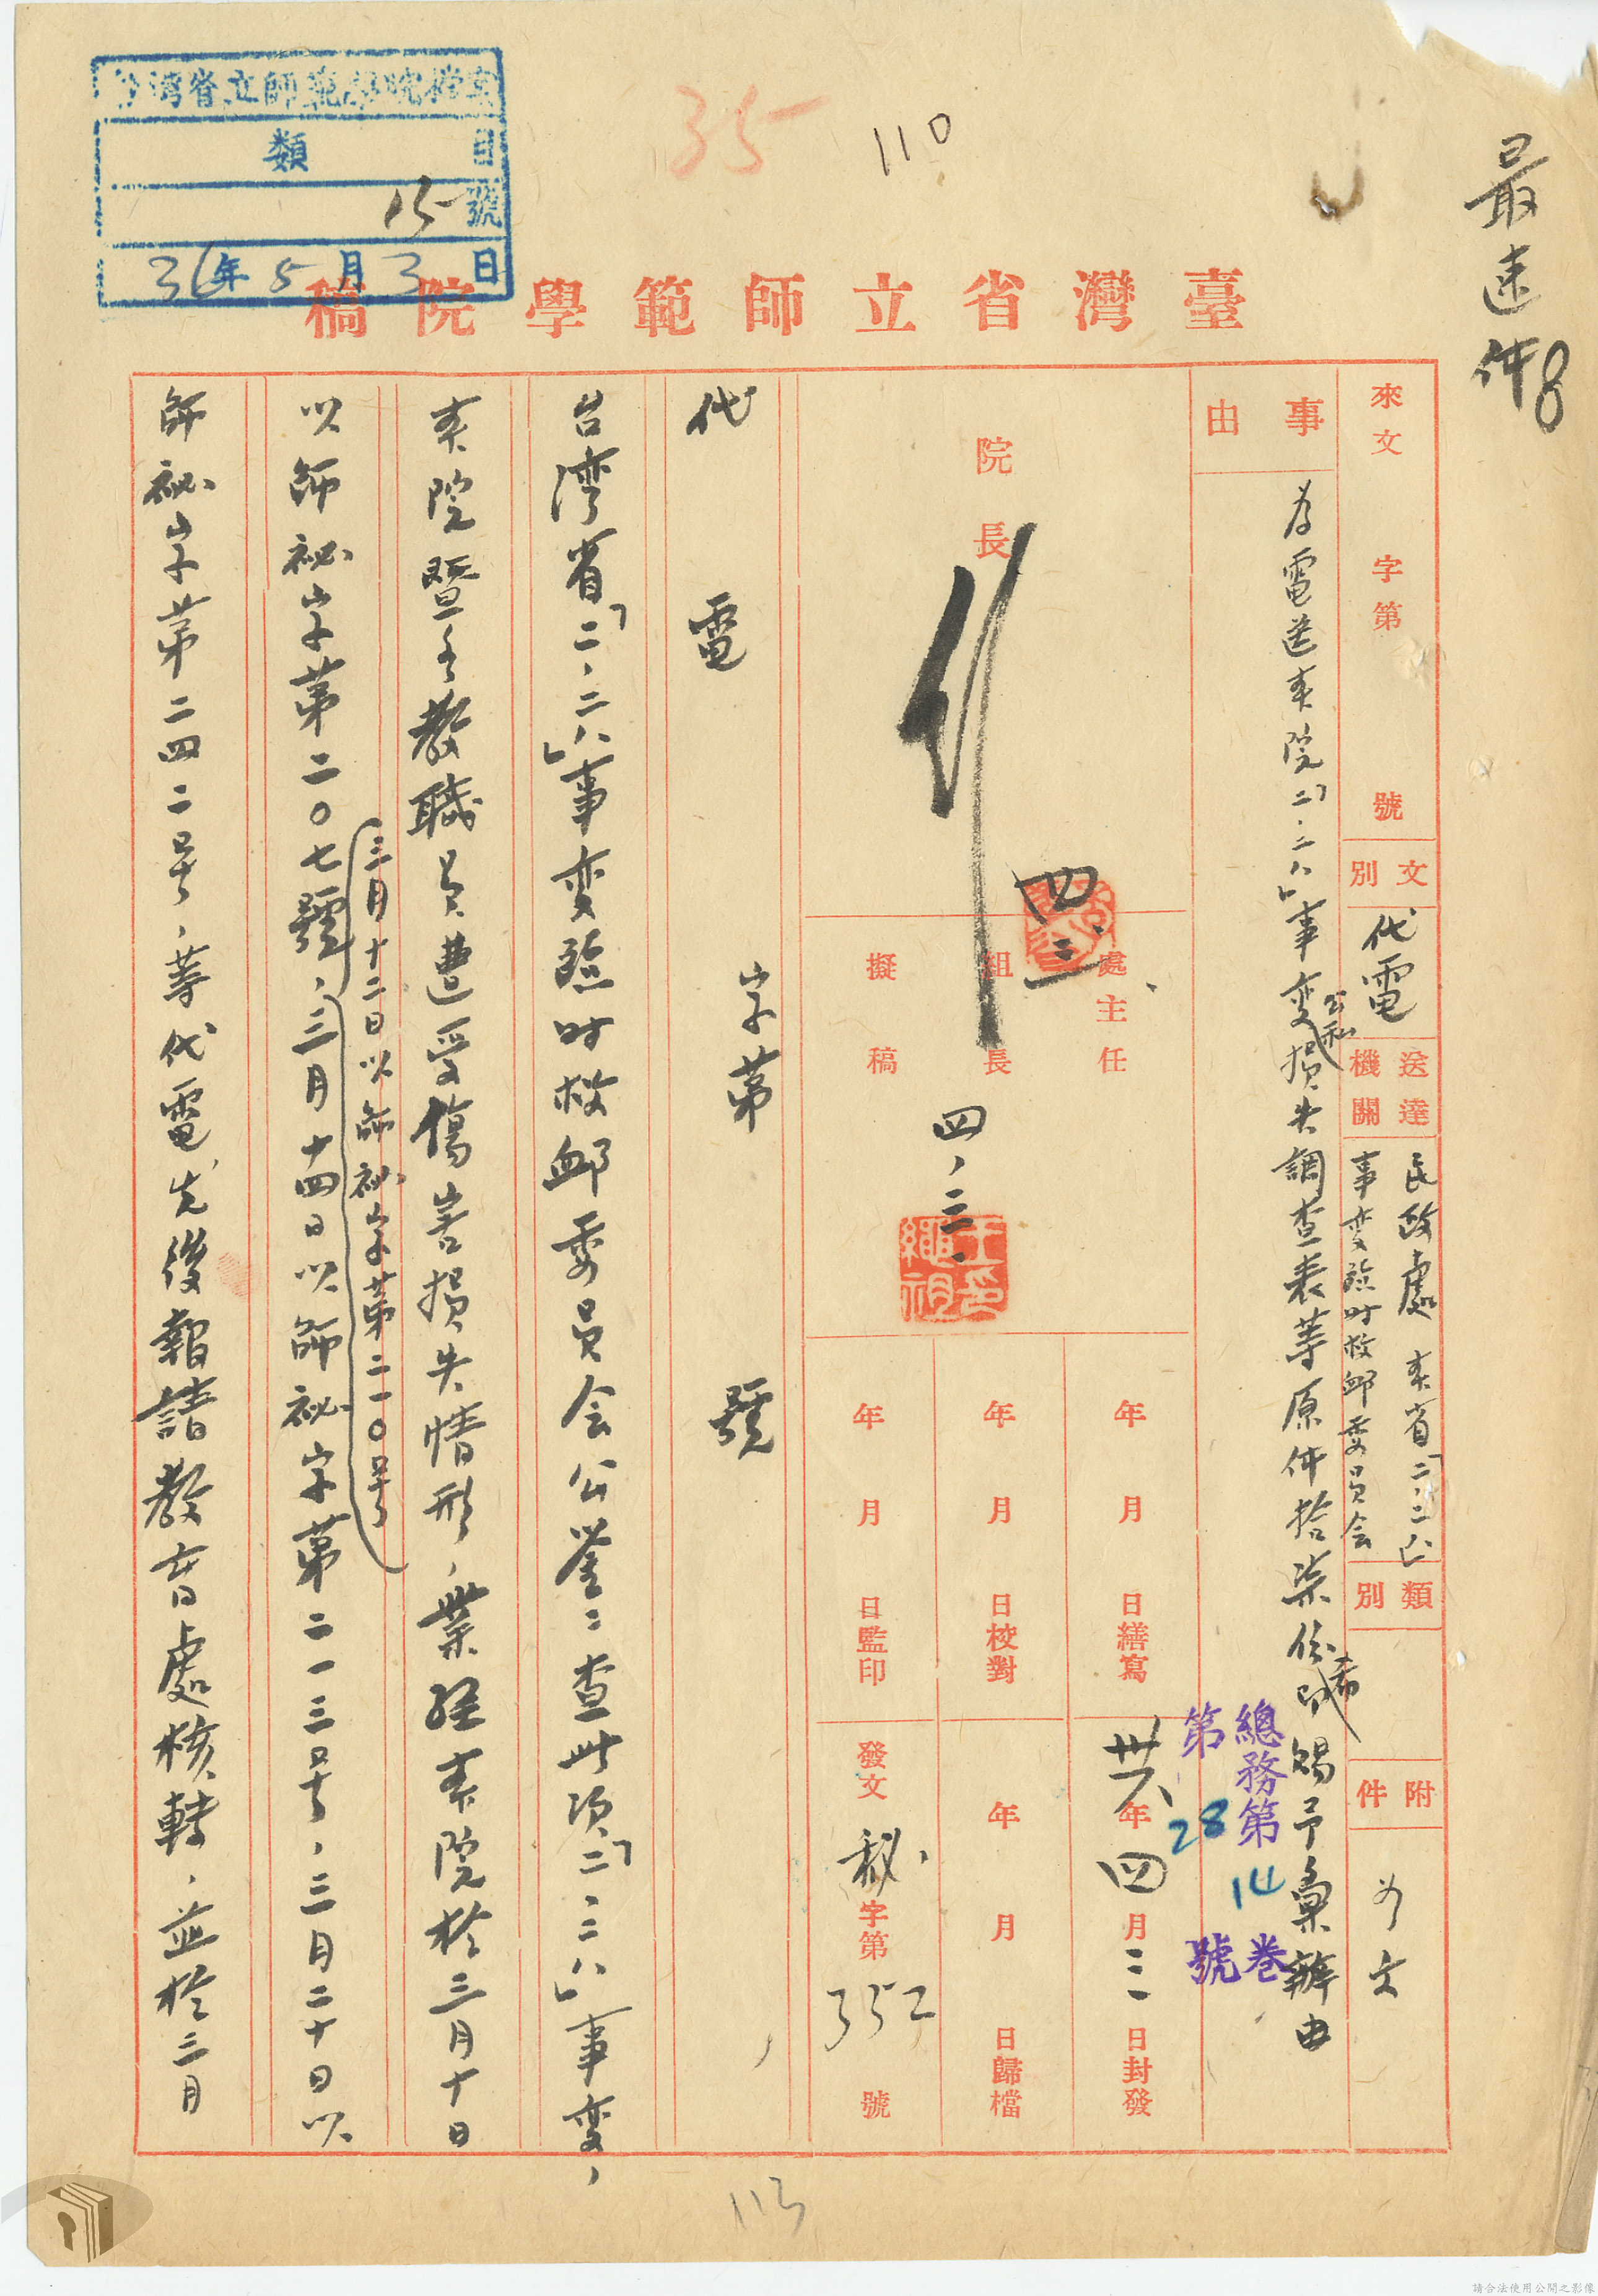 最速件
8
110
35
台灣省立師範學院檔案
類 目
15號
36年5月3日
臺灣省立師範學院稿
來文 字第 號
文別 代電
送達機關 民政處 本省「二.二八」事變臨時救卹委員会
類別
附件 如文
事由
為電送本院「二.二八」事变公私損失調查表等原件拾柒份希賜予彙辦由
總務第14卷
第28號
院長
四.三
處主任
組長
擬稿
四、三.
王繩祖印
年 月 日繕寫
年 月 日校對
年 月 日監印
卅六年四月三日封發
年 月 日歸檔
發文秘字第352號
代電 字第 號
台湾省「二.二八」事变臨时救卹委員会公鉴：查此项「二.二八」事变，
本院暨各教職員遭受傷害損失情形，業經本院於三月十日
以師祕字第二〇七號，三月十二日以師祕字第二一〇号，三月十四日以師祕字第二一三号，三月二十日以
師祕字第二四二号，等代電先後報請教育處核轉，並於三月
113
請合法使用公開之影像